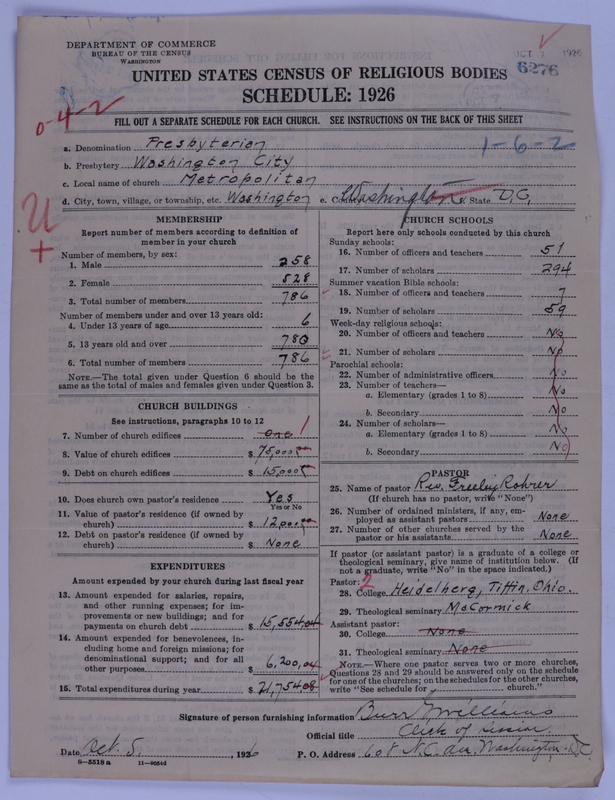 DEPARTMENT OF COMMERCE
BUREAU OF THE CENSUS
WASHINGTON
OCT 1926
6276
UNITED STATES CENSUS OF RELIGIOUS BODIES
SCHEDULE: 1926
0-4-2
FILL OUT A SEPARATE SCHEDULE FOR EACH CHURCH. SEE INSTRUCTIONS ON THE BACK OF THIS SHEET
1-6-2
a. Denomination Presbyterian
b. Presbytery Washington City
c. Local name of church Metropolitan
d. City, town, village, or township, etc. Washington e. County Washington f. State D.C.
U
+
MEMBERSHIP
Report number of members according to definition of member in your church
Number of members, by sex:
1. Male 258
2. Female 528
3. Total number of members 786
Number of members under and over 13 years old:
4. Under 13 years of age 6
5. 13 years old and over 780
6. Total number of members 786
NOTE.—The total given under Question 6 should be the same as the total of males and females given under Question 3.
CHURCH BUILDINGS
See instructions, paragraphs 10 to 12
7. Number of church edifices One 1
8. Value of church edifices $ 75,000
9. Debt on church edifices $ 15,000
10. Does church own pastor's residence Yes
Yes or No
11. Value of pastor's residence (if owned by church) $ 12,000
12. Debt on pastor's residence (if owned by church) $ None
EXPENDITURES
Amount expended by your church during last fiscal year
13. Amount expended for salaries, repairs, and other running expenses; for improvements or new buildings; and for payments on church debt $ 15,554.04
14. Amount expended for benevolences, including home and foreign missions; for denominational support; and for all other purposes $ 6,200.04
15. Total expenditures during year $ 21,754.08
CHURCH SCHOOLS
Report here only schools conducted by this church
Sunday schools:
16. Number of officers and teachers 51
17. Number of scholars 294
Summer vacation Bible schools:
18. Number of officers and teachers 7
19. Number of scholars 59
Week-day religious schools:
20. Number of officers and teachers No
21. Number of scholars No
Parochial schools:
22. Number of administrative officers No
23. Number of teachers—
a. Elementary (grades 1 to 8) No
b. Secondary No
24. Number of scholars—
a. Elementary (grades 1 to 8) No
b. Secondary No
PASTOR
25. Name of pastor Rev. Freeley Rohrer
(If church has no pastor, write "None")
26. Number of ordained ministers, if any, employed as assistant pastors None
27. Number of other churches served by the pastor or his assistants None
If pastor (or assistant pastor) is a graduate of a college or theological seminary, give name of institution below. (If not a graduate, write "No" in the space indicated.)
Pastor: 2
28. College Heidelberg, Tiffin, Ohio.
29. Theological seminary McCormick
Assistant pastor:
30. College None
31. Theological seminary None
NOTE.—Where one pastor serves two or more churches, Questions 28 and 29 should be answered only on the schedule for one of the churches; on the schedules for the other churches, write "See schedule for church."
Signature of person furnishing information Burr Williams
Official title Clerk of Session
Date Oct. 5, 1926 P. O. Address N.C. Ave. Washington D.C.
8-5518a 11-9054d